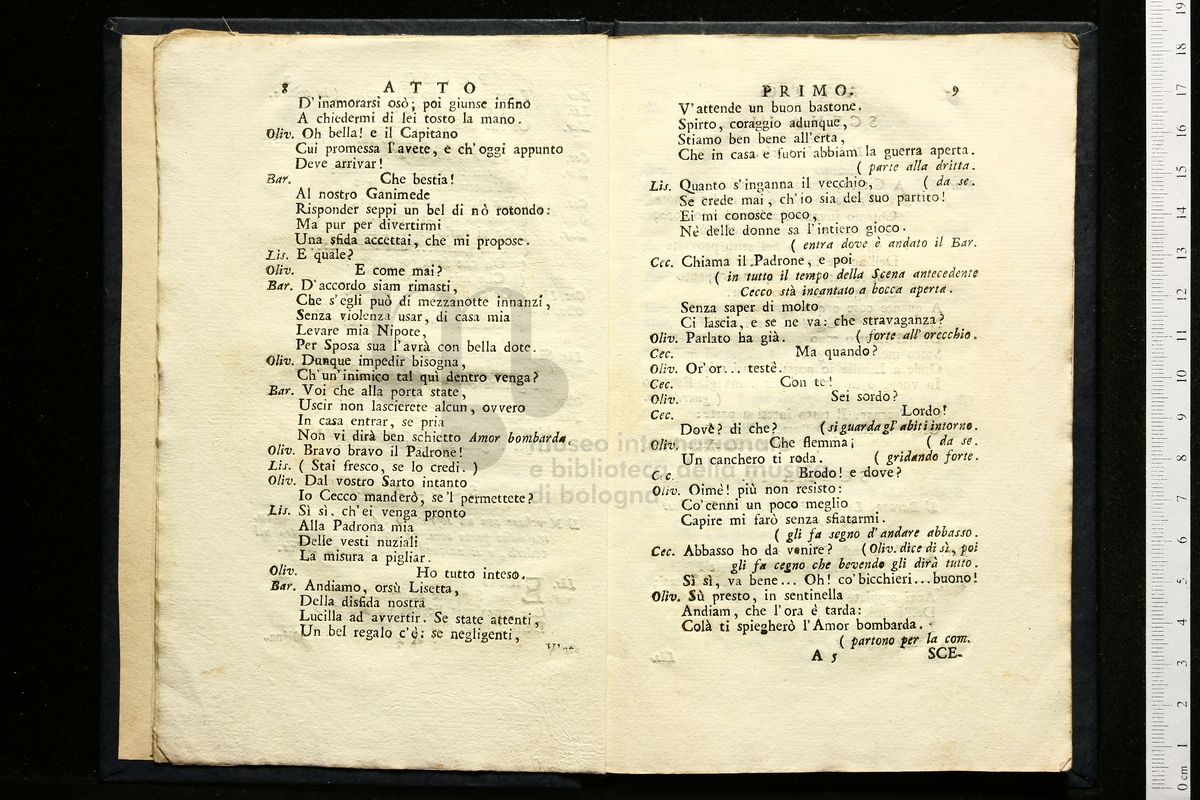 8 ATTO
D'inamorarsi osò; poi giunse infino
A chiedermi di lei tosto la mano.
Oliv. Oh bella! e il Capitano
Cui promessa l'avete, e ch'oggi appunto
Deve arrivar!
Bar. Che bestia!
Al nostro Ganimede
Risponder seppi un bel di nò rotondo:
Ma pur per divertirmi
Una sfida accettai, che mi propose.
Lis. E quale?
Oliv. E come mai?
Bar. D'accordo siam rimasti,
Che s'egli può di mezzanotte innanzi,
Senza violenza usar, di casa mia
Levare mia Nipote,
Per Sposa sua l'avrà con bella dote.
Oliv. Dunque impedir bisogna,
Ch'un'inimico tal quì dentro venga?
Bar. Voi che alla porta state,
Uscir non lascierete alcun, ovvero
In casa entrar, se pria
Non vi dirà ben schietto Amor bombarda.
Oliv. Bravo bravo il Padrone!
Lis. ( Stai fresco, se lo credi. )
Oliv. Dal vostro Sarto intanto
Io Cecco manderò, se'l permettete?
Lis. Sì sì, ch'ei venga pronto
Alla Padrona mia
Delle vesti nuziali
La misura a pigliar.
Oliv. Ho tutto inteso.
Bar. Andiamo, orsù Lisetta,
Della disfida nostra
Lucilla ad avvertir. Se state attenti,
Un bel regalo c'è: se negligenti,
PRIMO. 9
V'attende un buon bastone.
Spirto, coraggio adunque,
Stiamo ben bene all'erta,
Che in casa e fuori abbiam la guerra aperta.
( parte alla dritta.
Lis. Quanto s'inganna il vecchio, ( da se.
Se crede mai, ch'io sia del suo partito!
Ei mi conosce poco,
Nè delle donne sa l'intiero gioco.
( entra dove è andato il Bar.
Cec. Chiama il Padrone, e poi
( in tutto il tempo della Scena antecedente
Cecco stà incantato a bocca aperta.
Senza saper di molto
Ci lascia, e se ne va: che stravaganza?
Oliv. Parlato ha già. ( forte all'orecchio.
Cec. Ma quando?
Oliv. Or'or... testè.
Cec. Con te!
Oliv. Sei sordo?
Cec. Lordo!
Dovè? di che? ( si guarda gl'abiti intorno.
Oliv. Che flemma; ( da se.
Un canchero ti roda. ( gridando forte.
Cec. Brodo! e dove?
Oliv. Oimè! più non resisto:
Co'cenni un poco meglio
Capire mi farò senza sfiatarmi.
( gli fa segno d'andare abbasso.
Cec. Abbasso ho da venire? ( Oliv. dice di sì, poi
gli fa cegno che bevendo gli dirà tutto.
Sì sì, va bene... Oh! co'bicchieri...buono!
Oliv. Sù presto, in sentinella
Andiam, che l'ora è tarda:
Colà ti spiegherò l'Amor bombarda.
( partono per la com.
A 5 SCE-
museo internazionale
e biblioteca della musica
di bologna